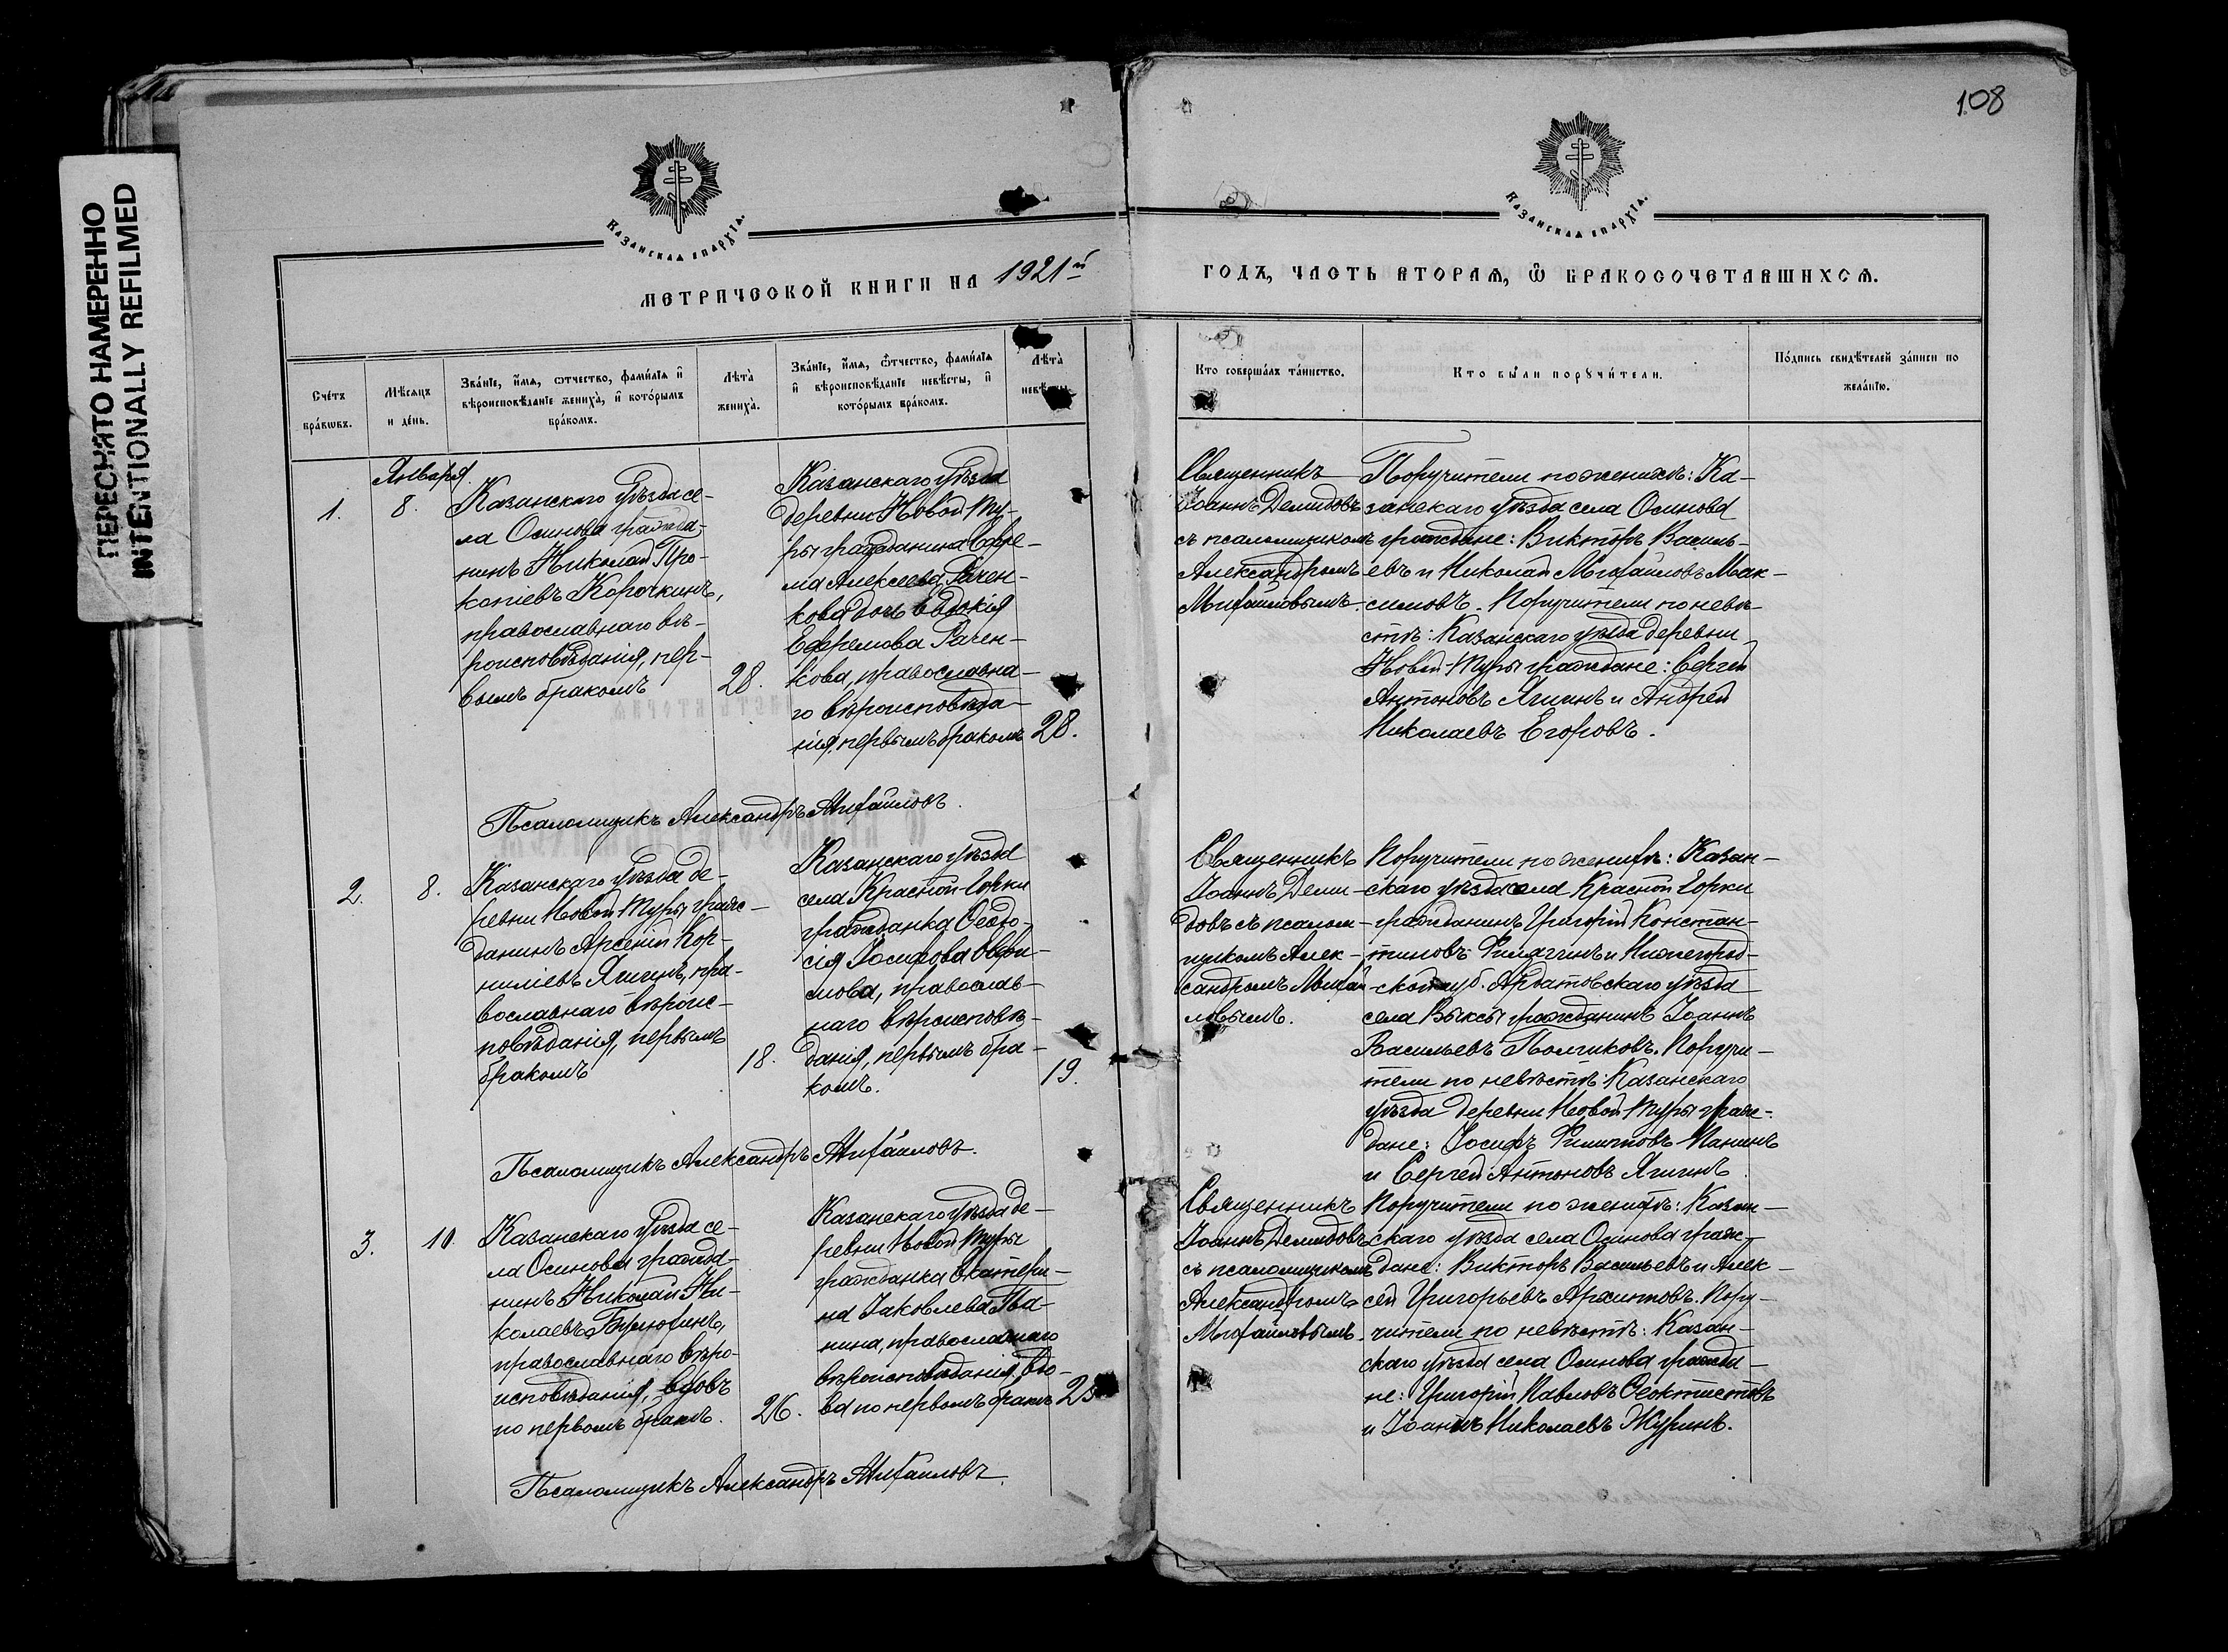 ПЕРЕСНЯТО НАМЕРЕННО
INTENTIONALLY REFILMED
108
КАЗАНСКАѦ ЄПАРХІѦ.
КАЗАНСКАѦ ЄПАРХІѦ.
МЕТРИЧЕСКОЙ КНИГИ НА 1921й
ГОДЪ, ЧАСТЬ ВТОРАѦ, Ѿ БРАКОСОЧЕТАВШИХСѦ.
Сче́тъ бра́кѡвъ.
Мѣ́сяцъ и де́нь.
Зва́нїе, и́мѧ, ѻтчество, фами́лїѧ и҆ вѣроисповѣ́данїе жениха̀, и҆ кото́рымъ бра́комъ.
Лѣта̀ жениха̀.
Зва́нїе, и́мѧ, ѻтчество, фами́лїѧ и҆ вѣроисповѣ́данїе невѣ́сты, и҆ кото́рымъ бра́комъ.
Лѣта̀ невѣ́сты
Кто̀ соверша́лъ та́инство.
Кто̀ бы́ли порꙋчи́тели.
По́дпись свидѣ́телей за́писи по жела́нїю.
Января.
1.
8.
Казанскаго уѣзда се-
ла Осинова гражда-
нинъ Николай Про-
копіевъ Корочкинъ,
православнаго вѣ-
роисповѣданія, пер-
вымъ бракомъ
28.
Казанскаго уѣзда
деревни Новой Ту-
ры гражданина Ефре-
ма Алексеева Рачен-
кова дочь Евдокія
Ефремова Рачен-
кова, православна-
го вѣроисповѣда-
нія, первымъ бракомъ
28.
Священникъ
Іоаннъ Демидовъ
съ псаломщикомъ
Александромъ
Михайловымъ.
Поручители по женихѣ: Ка-
занскаго уѣзда села Осинова
граждане: Викторъ Василь-
евъ и Николай Михайловъ Мак-
симовъ. Поручители по невѣ-
стѣ: Казанскаго уѣзда деревни
Новой-Туры граждане: Сергей
Антоновъ Ягинъ и Андрей
Николаевъ Егоровъ.
Псаломщикъ Александръ Михайловъ.
2.
8.
Казанскаго уѣзда де-
ревни Новой Туры граж-
данинъ Арсеній Кор-
ниліевъ Ягинъ, пра-
вославнаго вѣроис-
повѣданія, первымъ
бракомъ
18.
Казанскаго уѣзда
села Красной-Горки
гражданка Ѳеодо-
сія Іосифова
православ-
наго вѣроисповѣ-
данія, первымъ бра-
комъ.
19.
Священникъ
Іоаннъ Деми-
довъ съ псалом-
щикомъ Алек-
сандромъ Михай-
ловымъ.
Поручители по женихѣ: Казан-
скаго уѣзда села Красной Горки
гражданинъ Григорій Констан-
тиновъ и Нижегород-
ской губ. Ардатовскаго уѣзда
села Выксы гражданинъ Іоаннъ
Васильевъ Поручи-
тели по невѣстѣ: Казанскаго
уѣзда деревни Новой-Туры граж-
дане: Іосифъ Филиповъ Панинъ
и Сергей Антоновъ Ягинъ
Псаломщикъ Александръ Михайловъ.
3.
10.
Казанскаго уѣзда се-
ла Осинова гражда-
нинъ Николай Ни-
колаевъ
православнаго вѣро-
исповѣданія, вдовъ
по первомъ бракѣ.
26.
Казанскаго уѣзда де-
ревни Новой Туры
гражданка Екатери-
на Іаковлева Па-
нина, православнаго
вѣроисповѣданія, вдо-
ва по первомъ бракѣ
25
Священникъ
Іоаннъ Демидовъ
съ псаломщикомъ
Александромъ
Михайловымъ.
Поручители по женихѣ: Казан-
скаго уѣзда села Осинова граж-
дане: Викторъ Васильевъ и Алек-
сей Григорьевъ Архиповъ. Пору-
чители по невѣстѣ: Казан-
скаго уѣзда села Осинова гражда-
не: Григорій Павловъ Ѳеоктистовъ
и Іоаннъ Николаевъ Журинъ.
Псаломщикъ Александръ Михайловъ.